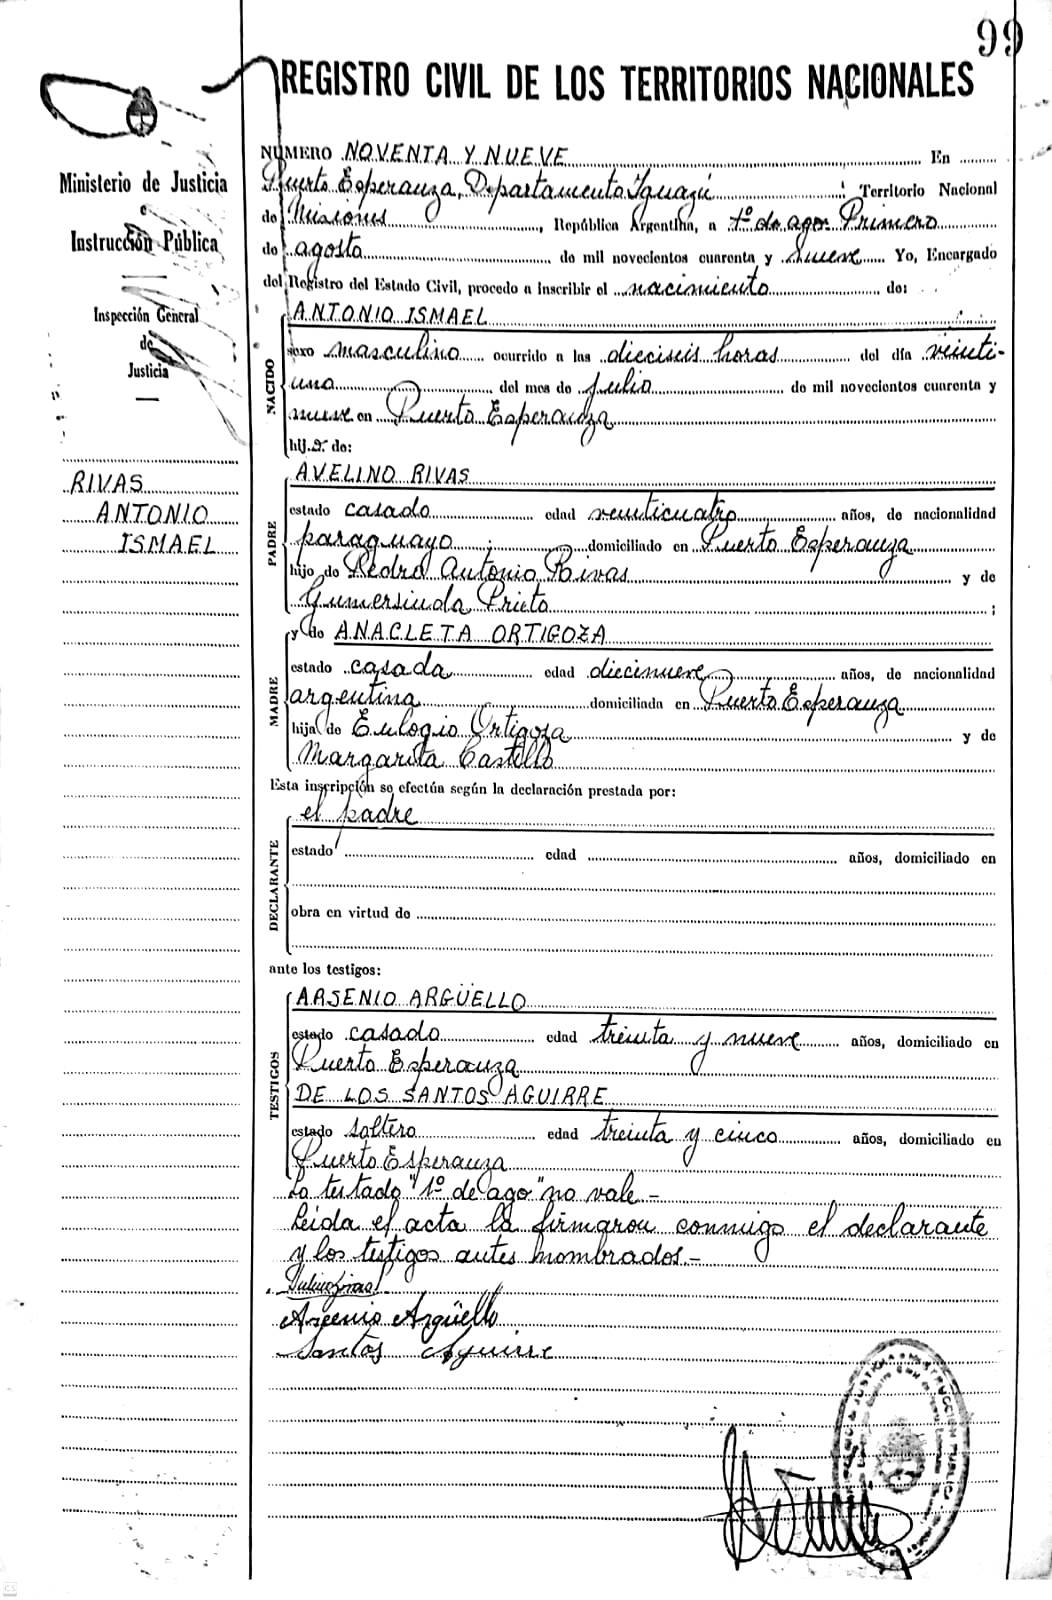 99
REGISTRO CIVIL DE LOS TERRITORIOS NACIONALES
Ministerio de Justicia
e
Instrucción Pública
Inspección General
de
Justicia
RIVAS
ANTONIO
ISMAEL
NUMERO NOVENTA Y NUEVE En
Puerto Esperanza, Departamento Iguazú Territorio Nacional
de Misiones, República Argentina, a 1º de ago Primero
de agosto de mil novecientos cuarenta y nueve Yo, Encargado
del Registro del Estado Civil, procedo a inscribir el nacimiento de:
NACIDO
ANTONIO ISMAEL
sexo masculino ocurrido a las dieciseis horas del día veinti-
uno del mes de julio de mil novecientos cuarenta y
nueve en Puerto Esperanza
hij.o de:
PADRE
AVELINO RIVAS
estado casado edad veinticuatro años, de nacionalidad
paraguayo domiciliado en Puerto Esperanza
hijo de Pedro Antonio Rivas y de
Gumersinda Prieto ;
MADRE
y de ANACLETA ORTIGOZA
estado casada edad diecinueve años, de nacionalidad
argentina domiciliada en Puerto Esperanza
hija de Eulogio Ortigoza y de
Margarita Castillo
Esta inscripción se efectúa según la declaración prestada por:
DECLARANTE
el padre
estado edad años, domiciliado en
obra en virtud de
ante los testigos:
TESTIGOS
ARSENIO ARGÜELLO
estado casado edad treinta y nueve años, domiciliado en
Puerto Esperanza
DE LOS SANTOS AGUIRRE
estado soltero edad treinta y cinco años, domiciliado en
Puerto Esperanza
Lo testado "1º de ago" no vale -
Leida el acta la firmaron conmigo el declarante
y los testigos antes nombrados.-
Arsenio Argüello
Santos Aguirre
JUSTICIA INSTRUCCION PUBLICA